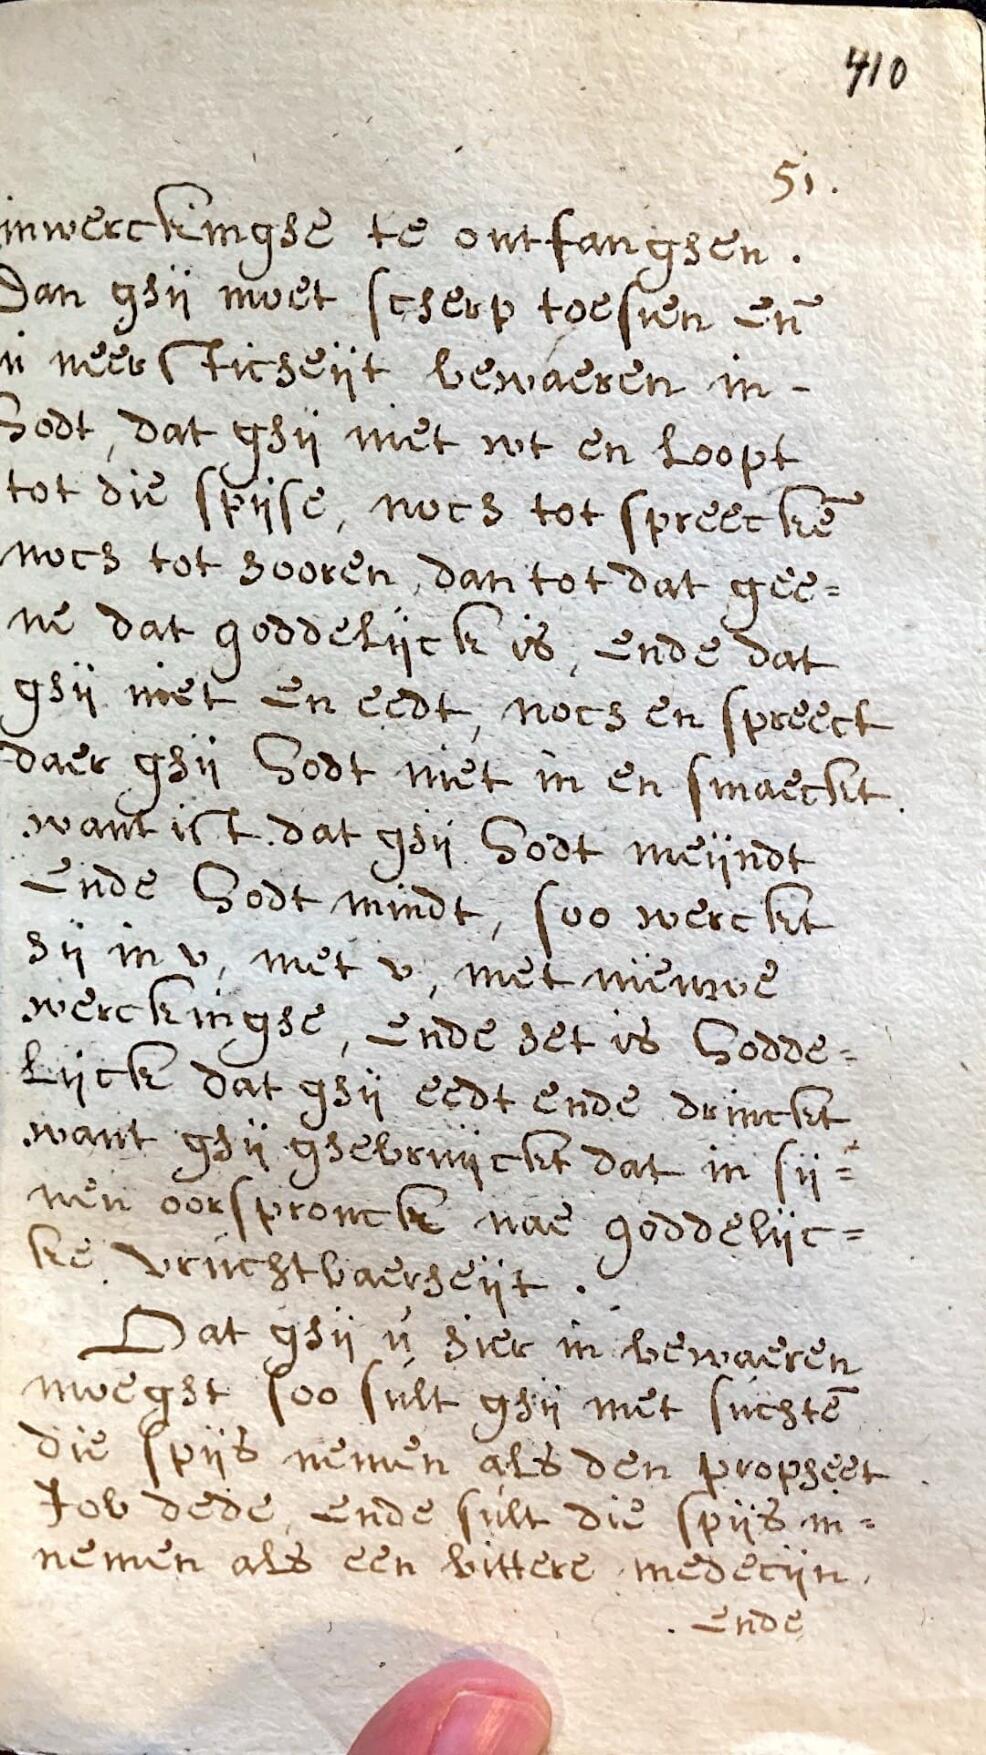 410
51.
inwerckinghe te ontfanghen.
Dan ghij moet scherp toesien en̄
u neersticheijt bewaeren in-
Godt, dat ghij niet wt en loopt
tot die spijse, noch tot spreeckē
noch tot hooren, dan tot dat gee=
ne dat goddelijck is, ende dat
ghij niet en eedt, noch en spreeckt
daer ghij Godt niet in en smaeckt.
want ist dat ghij Godt meijndt
ende Godt mindt, soo werckt
hij in v, met v, met nieuwe
werckinghe, ende het is Godde=
lijck dat ghij eedt ende drinckt
want ghij ghebruijckt dat in sij=
nen oorspronck nae goddelijc=
ke vruchtbaerheijt.
Dat ghij u hier in bewaeren
moeght soo sult ghij met suchtē
die spijs nemen als den propheet
Job dede, ende sult die spijs in=
nemen als een bittere medecijn,
ende